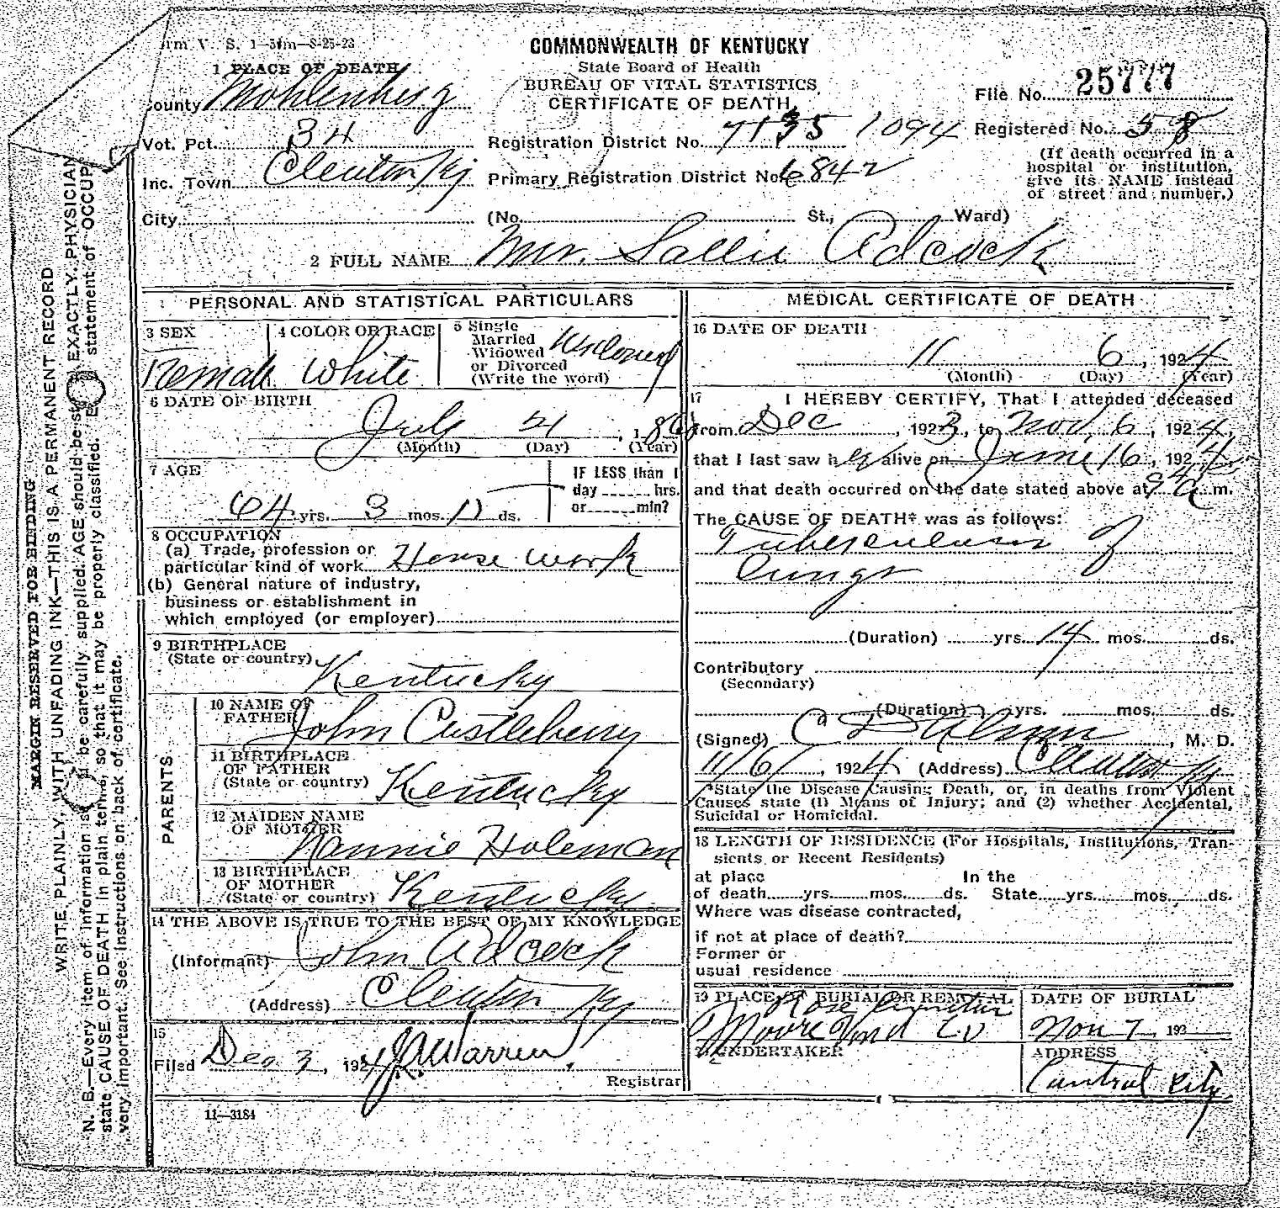 Form V. S. 1-50m-8-25-23
COMMONWEALTH OF KENTUCKY
State Board of Health
BUREAU OF VITAL STATISTICS
CERTIFICATE OF DEATH
1 PLACE OF DEATH
County Mohlenberg
File No. 25777
Vot. Pct. 34
Registration District No. 7135 1094
Registered No. 58
Inc. Town Cleaton Ky
Primary Registration District No. 6842
(If death occurred in a
hospital or institution,
give its NAME instead
of street and number.)
City
(No. St., Ward)
2 FULL NAME Mrs. Sallie Adcock
PERSONAL AND STATISTICAL PARTICULARS
3 SEX
Female
4 COLOR OR RACE
White
5 Single
Married
Widowed
or Divorced
(Write the word)
Widowed
6 DATE OF BIRTH
July 21, 186
(Month) (Day) (Year)
7 AGE
64 yrs. 3 mos. ds.
IF LESS than 1
day hrs.
or min?
8 OCCUPATION
(a) Trade, profession or
particular kind of work House work
(b) General nature of industry,
business or establishment in
which employed (or employer)
9 BIRTHPLACE
(State or country) Kentucky
PARENTS
10 NAME OF
FATHER John Custleberry
11 BIRTHPLACE
OF FATHER
(State or country) Kentucky
12 MAIDEN NAME
OF MOTHER Nannie Holeman
13 BIRTHPLACE
OF MOTHER
(State or country) Kentucky
14 THE ABOVE IS TRUE TO THE BEST OF MY KNOWLEDGE
(Informant) John Adcock
(Address) Cleaton Ky
15
Filed Dec 3, 1924 J.A. Warren
Registrar
11-3184
MEDICAL CERTIFICATE OF DEATH
16 DATE OF DEATH
11 6, 1924
(Month) (Day) (Year)
17 I HEREBY CERTIFY, That I attended deceased
from Dec, 1923, to Nov 6, 1924,
that I last saw her alive on June 16, 1924,
and that death occurred on the date stated above at 9 a m.
The CAUSE OF DEATH* was as follows:
Tuberculosis of
Lungs
(Duration) yrs. 14 mos. ds.
Contributory
(Secondary)
(Duration) yrs. mos. ds.
(Signed) , M. D.
11/6/, 1924 (Address) Cleaton Ky
*State the Disease Causing Death, or, in deaths from Violent
Causes state (1) Means of Injury; and (2) whether Accidental,
Suicidal or Homicidal.
18 LENGTH OF RESIDENCE (For Hospitals, Institutions, Tran-
sients or Recent Residents)
at place In the
of death yrs. mos. ds. State yrs. mos. ds.
Where was disease contracted,
if not at place of death?
Former or
usual residence
19 PLACE OF BURIAL OR REMOVAL
Rose
DATE OF BURIAL
Nov 7, 193
20 UNDERTAKER
Moore
ADDRESS
Central City
MARGIN RESERVED FOR BINDING
WRITE PLAINLY, WITH UNFADING INK—THIS IS A PERMANENT RECORD
N. B.—Every item of information should be carefully supplied. AGE should be stated EXACTLY. PHYSICIAN
state CAUSE OF DEATH in plain terms, so that it may be properly classified. statement of OCCUP
very important. See instructions on back of certificate.